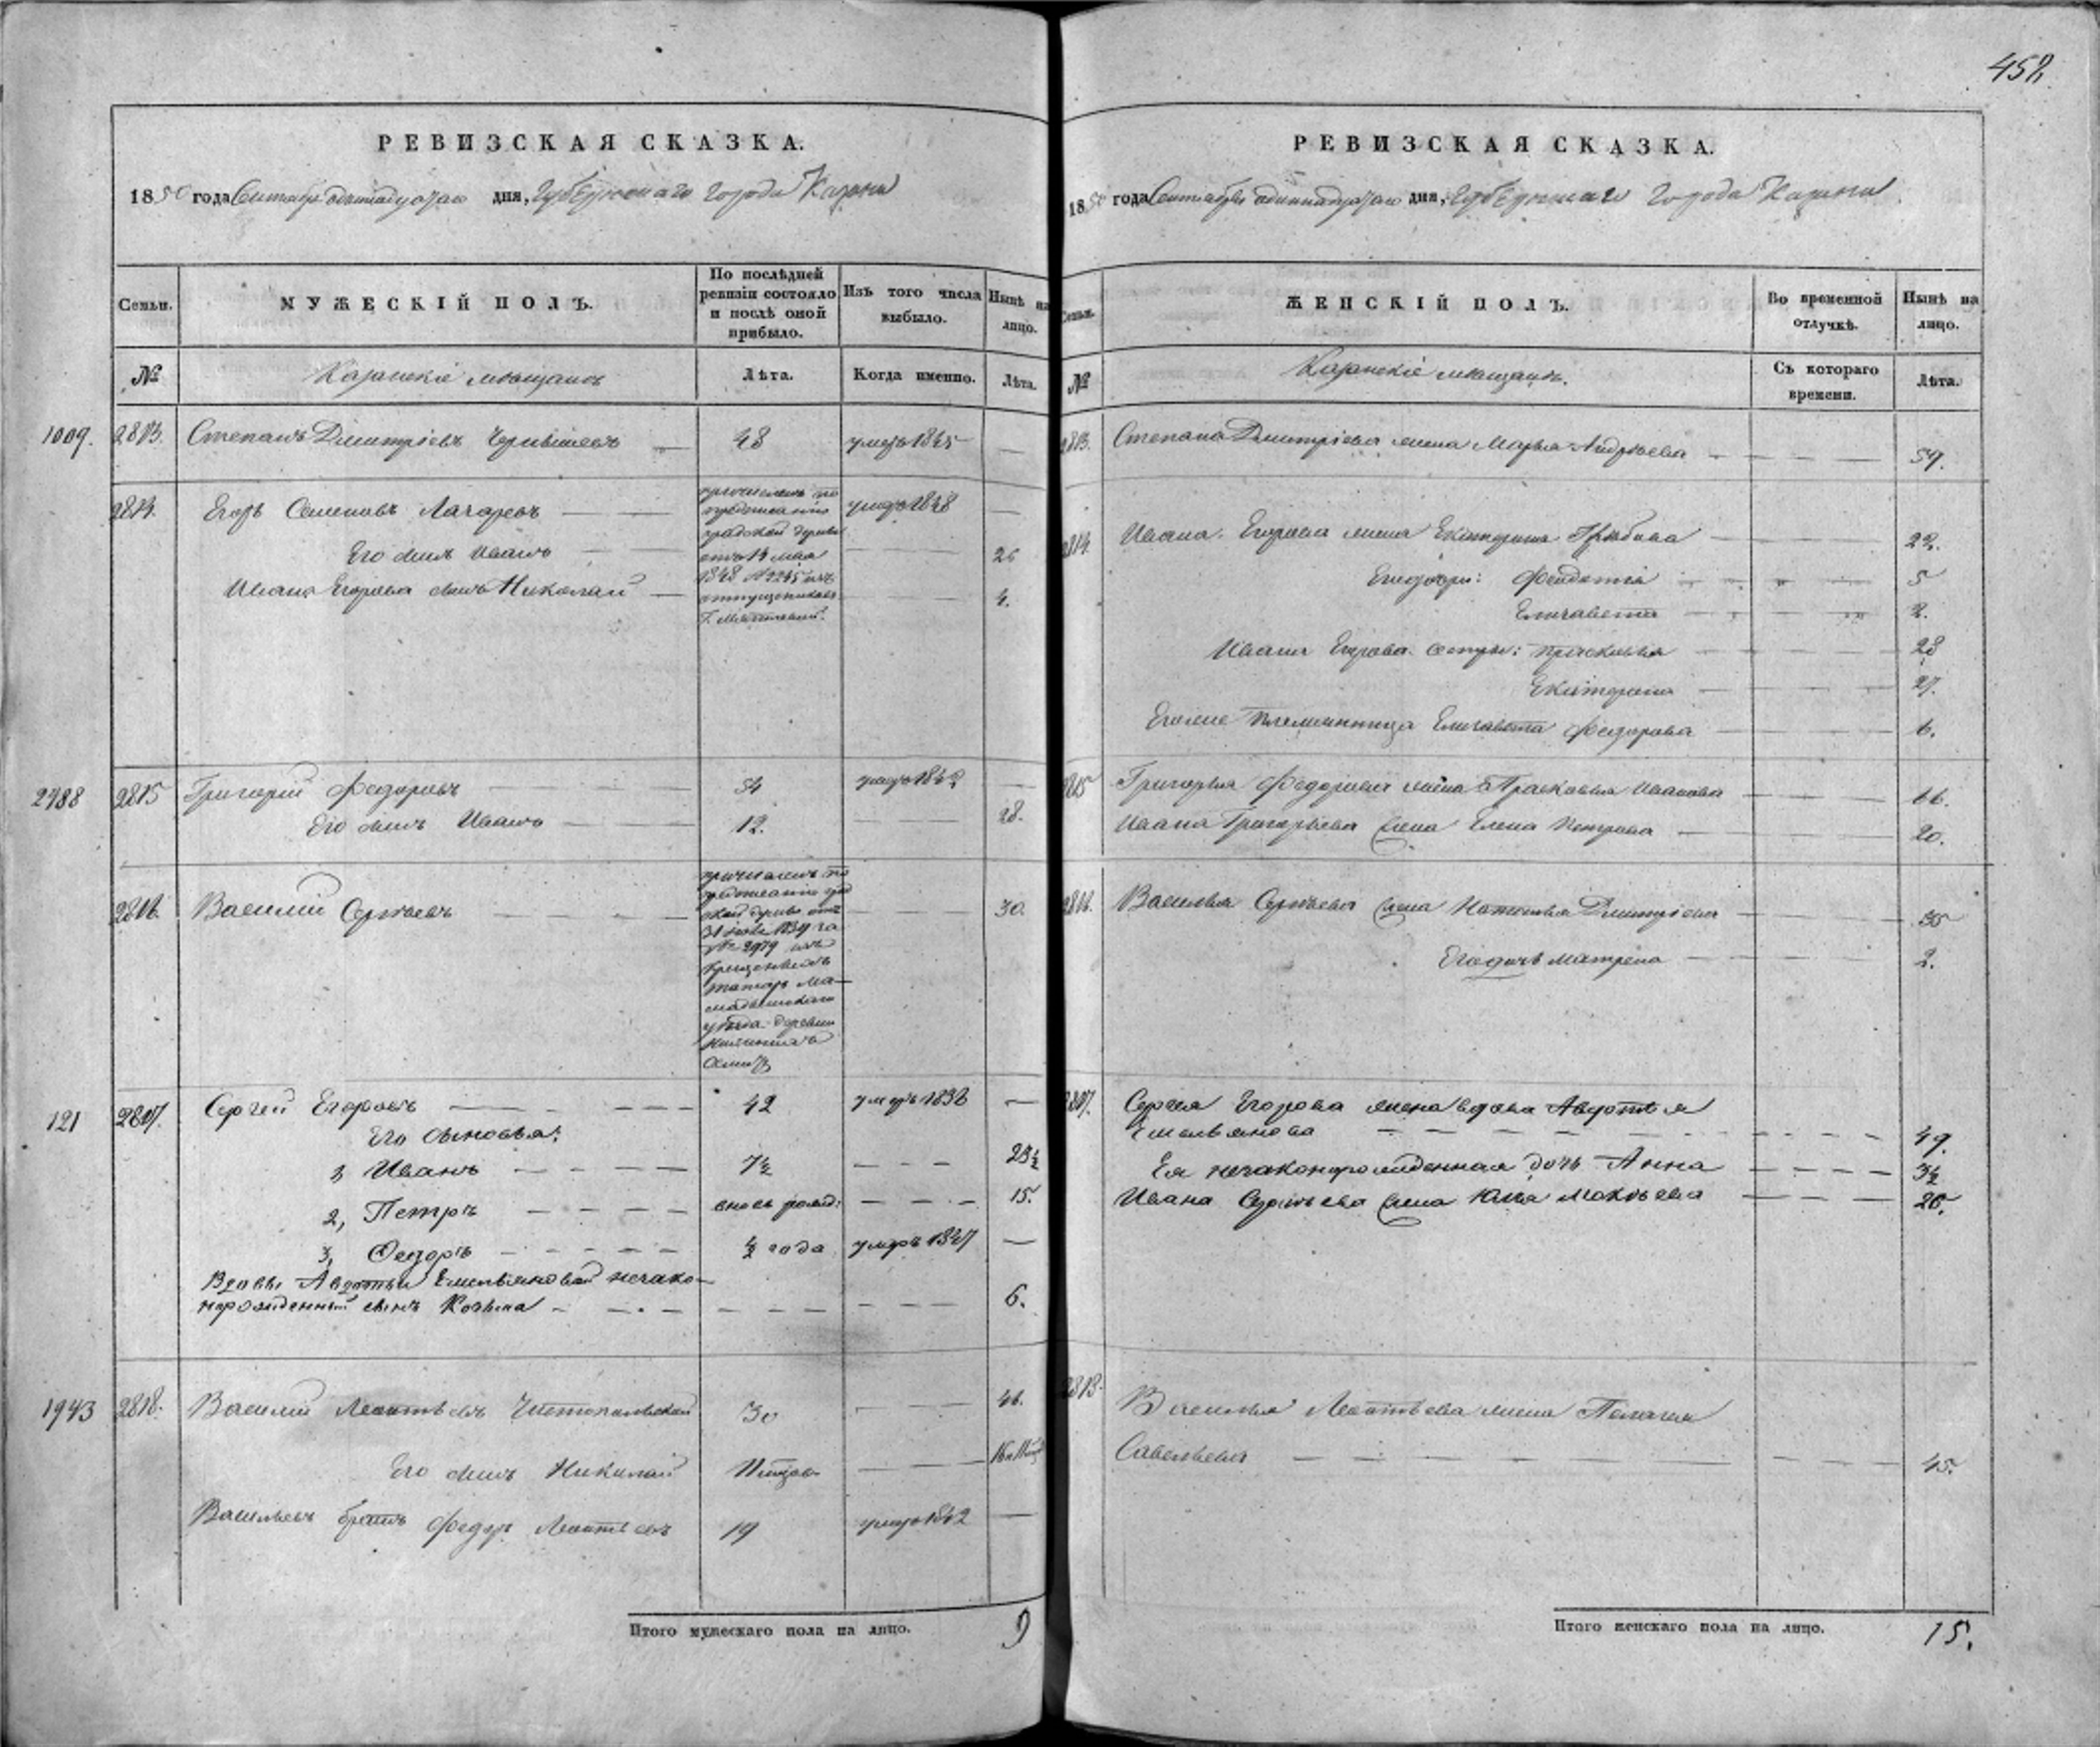 452
РЕВИЗСКАЯ СКАЗКА.
1850 года Сентября одиннадцатаго дня, Губернскаго города Казани
Семьи.
МУЖЕСКІЙ ПОЛЪ.
По послѣдней ревизіи состояло и послѣ оной прибыло.
Изъ того числа выбыло.
Нынѣ на лицо.
№
Казанскіе мѣщане
Лѣта.
Когда именно.
Лѣта.
1009. 2813. Степанъ Дмитріевъ 48 умеръ 1845 —
2814. Егоръ Семеновъ Лазаревъ — умеръ 1848 —
Его сынъ Иванъ — 26
Ивана Егорова сынъ Николай — 4.
причисленъ по
предписанію
градской думы
отъ 14 мая
1848 № 2245 изъ
отпущенниковъ
2488 2815 Григорій Федоровъ 54 умеръ 1842 —
Его сынъ Иванъ — 12. — 28.
2816. Василій Сергѣевъ — 30.
причисленъ по
предписанію град
ской думы отъ
31 1839 за
№ 2979 изъ
крещеныхъ
татаръ Ма-
мадышскаго
уѣзда деревни
121 2817. Сергей Егоровъ — 42 умеръ 1838 —
Его сыновья:
1, Иванъ — 7½ — 23½
2, Петръ — вновь рожд: — 15.
3, Федоръ — ½ года умеръ 1837 —
Вдовы Авдотьи Емельяновой незако-
норожденный сынъ Козьма — 6.
1943 2818. Василій Леонтьевъ Чистопольской 30 — 46.
Его сынъ Николай — 16
Васильевъ братъ Федоръ Леонтьевъ 19 умеръ 1842 —
Итого мужескаго пола на лицо. 9
РЕВИЗСКАЯ СКАЗКА.
1850 года Сентября одиннадцатаго дня, Губернскаго города Казани.
Семьи.
ЖЕНСКІЙ ПОЛЪ.
Во временной отлучкѣ.
Нынѣ на лицо.
№
Казанскіе мѣщане.
Съ котораго времени.
Лѣта.
2813. Степана Дмитріева жена Марья Андреева — 59.
2814. Ивана Егорова жена Екатерина — 22.
Его дочри: Феодотія — 5
Елизавета — 2.
Ивана Егорова сестры: Прасковья — 28
Екатерина — 27.
Его же племянница Елизавета Федорова — 6.
2815 Григорья Федорова жена Прасковья Иванова — 66.
Ивана Григорьева жена Елена Петрова — 20.
2816. Василья Сергѣева жена Наталья Дмитріева — 35
Его дочь Матрена — 2.
2817. Сергея Егорова жена вдова Авдотья
Емельянова — 49.
Ея незаконнорожденная дочь Анна — 3½
Ивана Сергѣева жена Юлія Моксѣева — 20.
2818. Василья Леонтьева жена Пелагея
Савельева — 45.
Итого женскаго пола на лицо. 15.